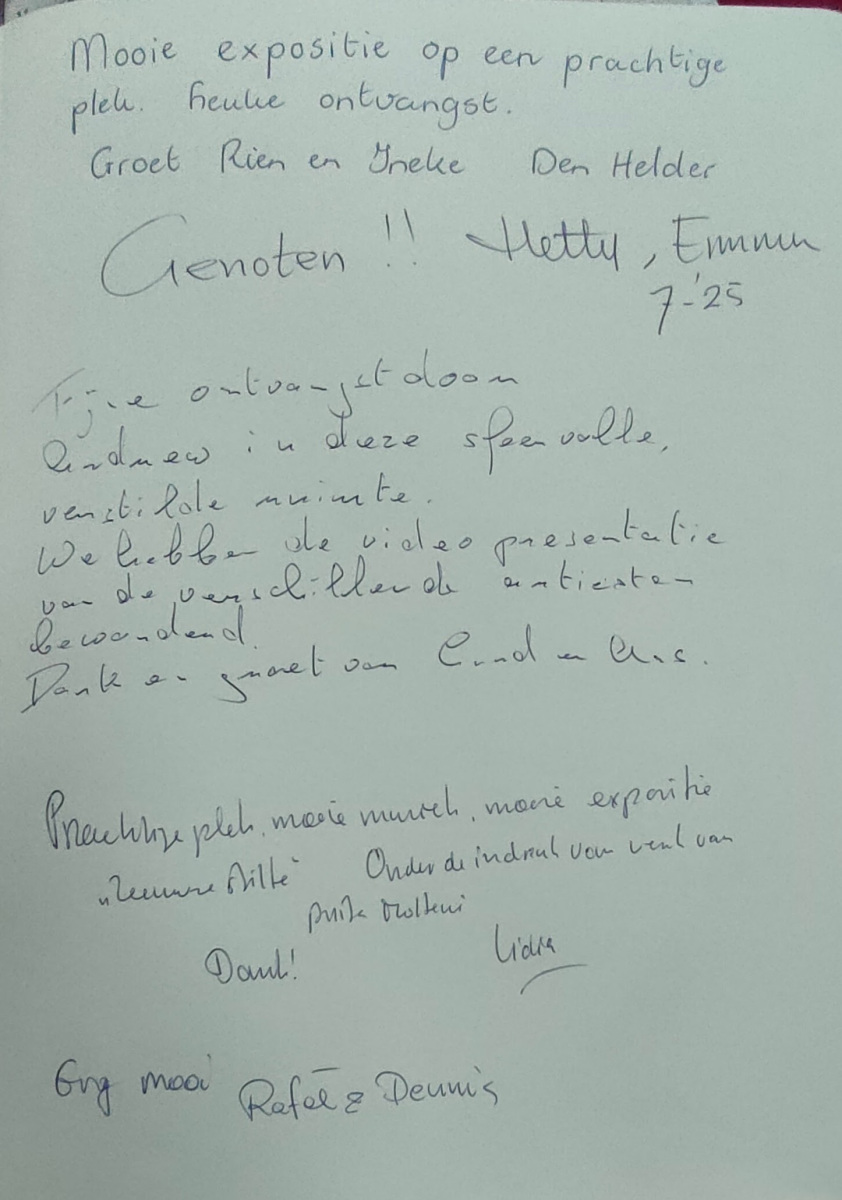 Mooie expositie op een prachtige
plek. heuke ontvangst.
Groet Rien en Ineke Den Helder
Genoten !! Hetty, Emmen
7-'25
Fijne ontvangst door
Andrew in deze sfeervolle,
verstilde ruimte.
We hebben de video presentatie
van de verschillende artiesten
bewonderd.
Dank en groet van
Prachtige plek, mooie muziek, mooie expositie
"Zeeuwse stilte" Onder de indruk van werk van
Dank! Lidia
Erg mooi Rafaël & Dennis